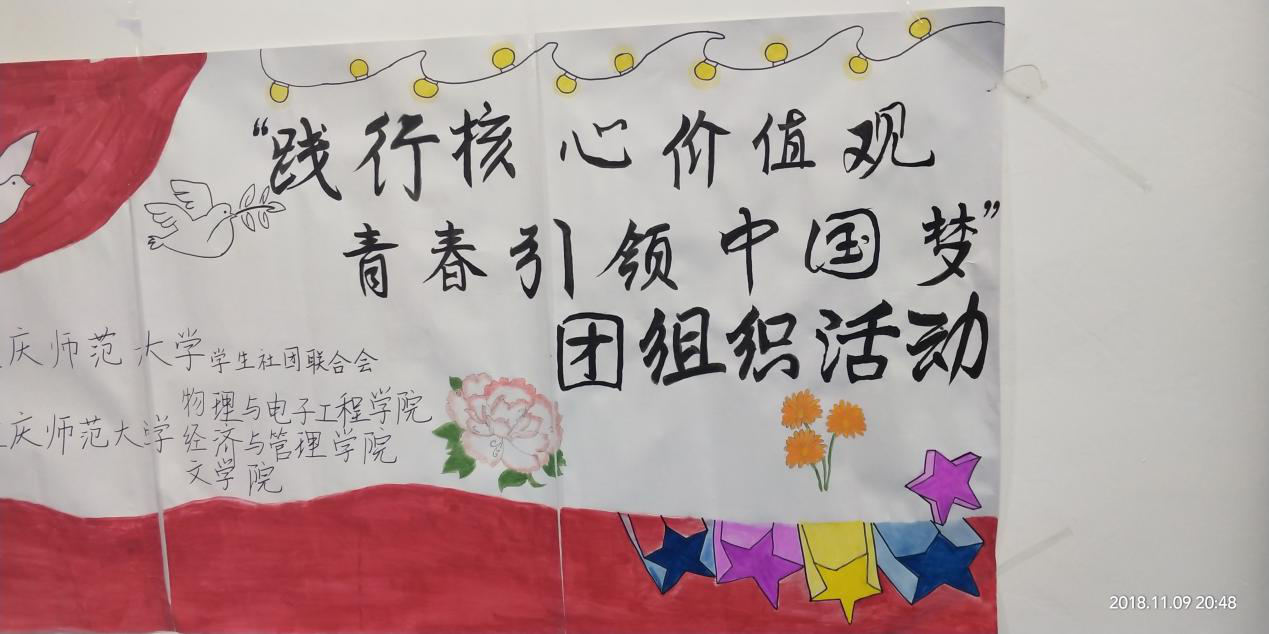 “践行核心价值观
青春引领中国梦”
团组织活动
庆师范大学学生社团联合会
物理与电子工程学院
庆师范大学经济与管理学院
文学院
2018.11.09 20:48